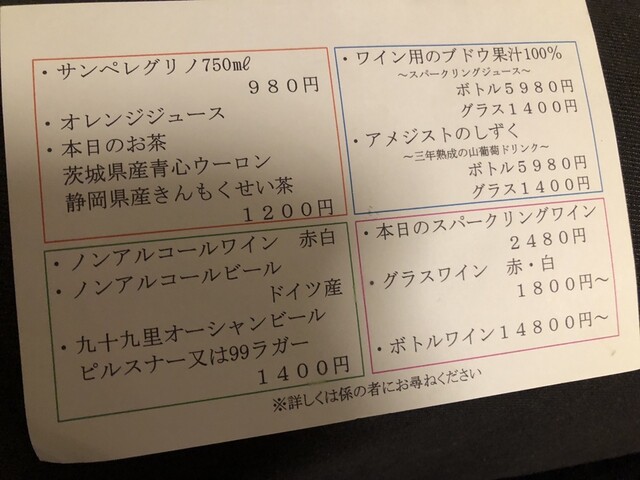 ・サンペレグリノ750㎖
980円
・オレンジジュース
・本日のお茶
茨城県産青心ウーロン
静岡県産きんもくせい茶
1200円
・ワイン用のブドウ果汁100%
～スパークリングジュース～
ボトル5980円
グラス1400円
・アメジストのしずく
～三年熟成の山葡萄ドリンク～
ボトル5980円
グラス1400円
・ノンアルコールワイン 赤白
・ノンアルコールビール
ドイツ産
・九十九里オーシャンビール
ピルスナー又は99ラガー
1400円
・本日のスパークリングワイン
2480円
・グラスワイン 赤・白
1800円～
・ボトルワイン14800円～
※詳しくは係の者にお尋ねください